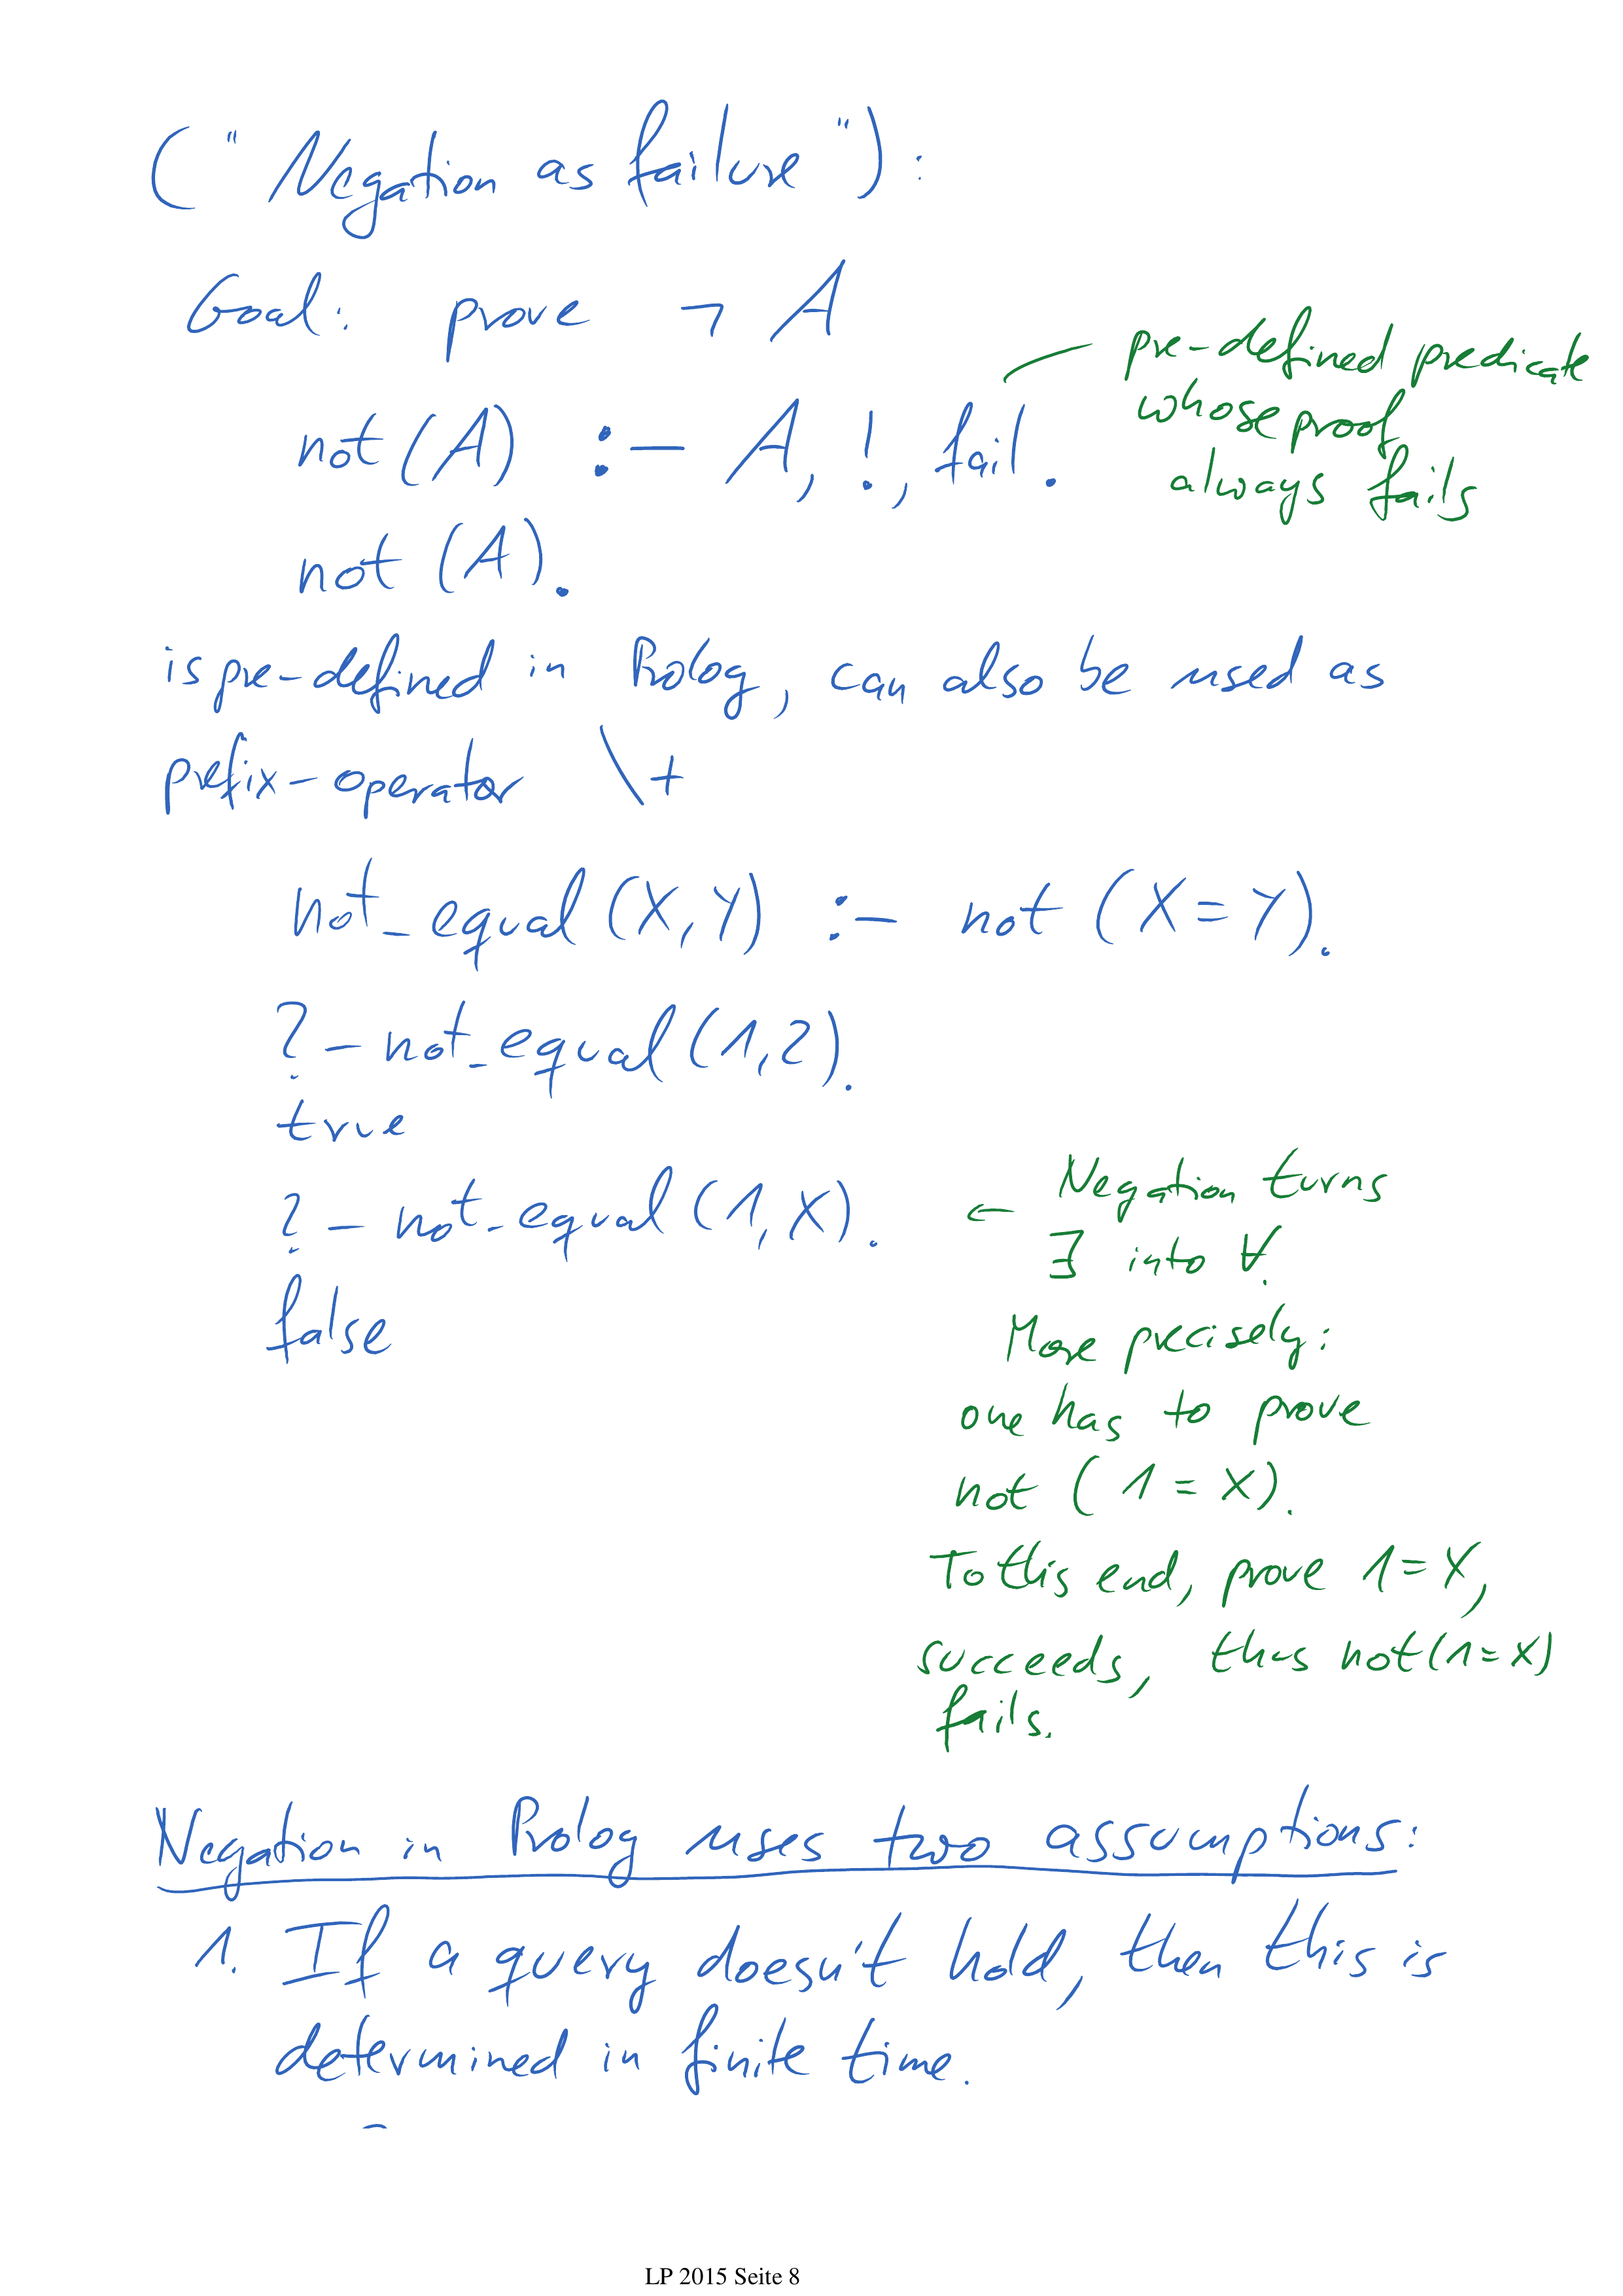 ("Negation as failure"):
Goal: prove ¬ A
pre-defined predicate
whose proof
always fails
not(A) :- A, !, fail.
not (A).
is pre-defined in Prolog, can also be used as
prefix-operator \+
not_equal (X,Y) :- not (X=Y).
?- not_equal (1,2).
true
?- not_equal (1,X).
false
← Negation turns
∃ into ∀.
More precisely:
one has to prove
not (1 = X).
To this end, prove 1=X,
succeeds, thus not(1=X)
fails.
Negation in Prolog uses two assumptions:
1. If a query doesn't hold, then this is
determined in finite time.
LP 2015 Seite 8